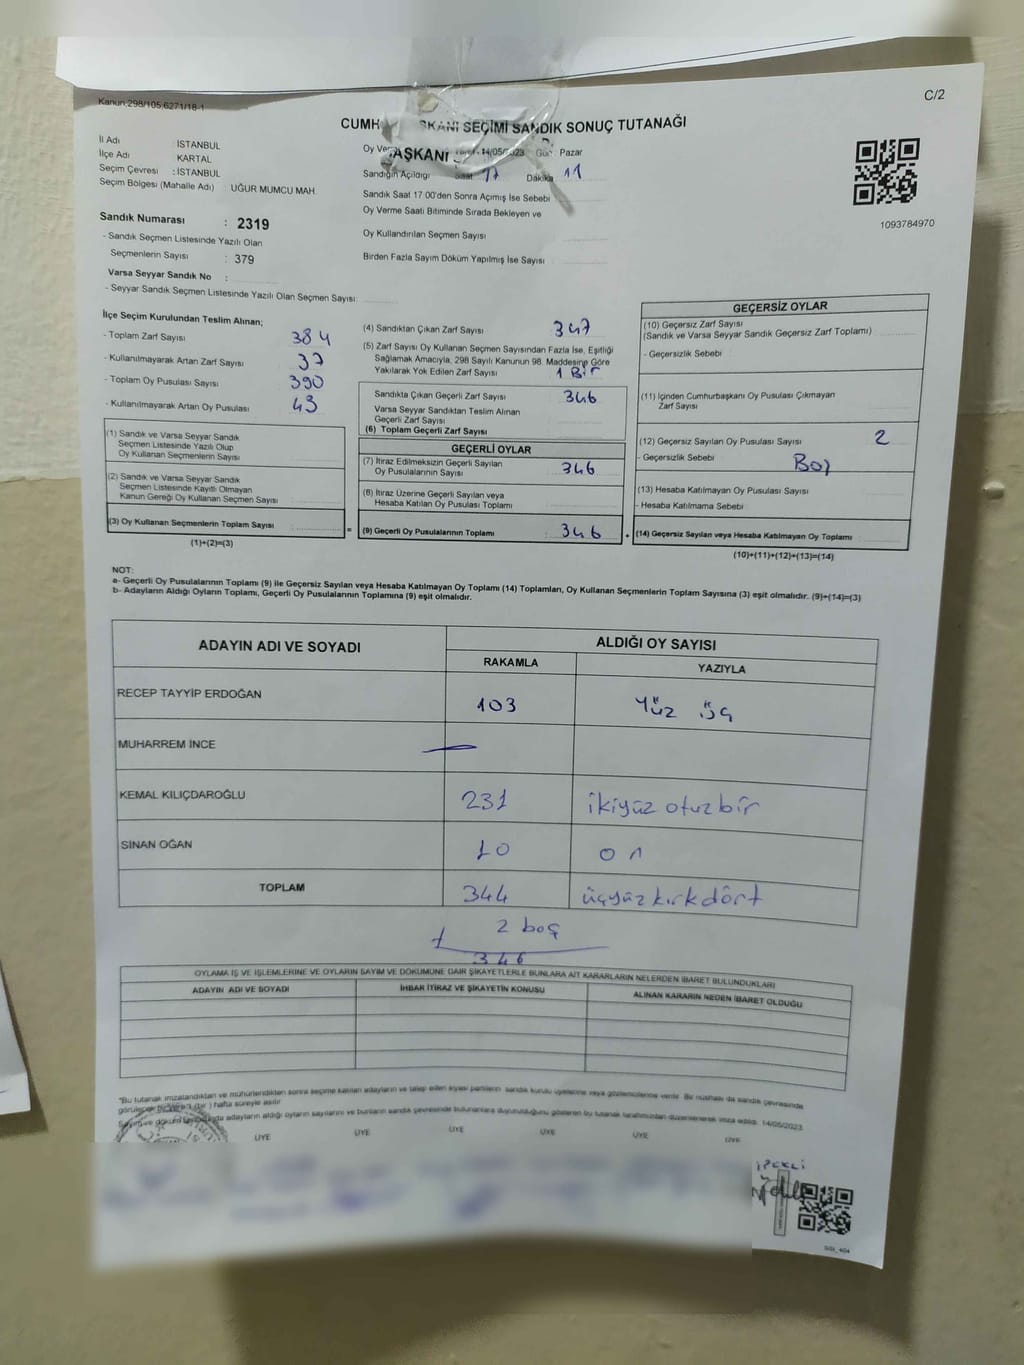 Kanun:298/105;6271/18-1
C/2
CUMH SKANI SEÇİMİ SANDIK SONUÇ TUTANAĞI
İl Adı : İSTANBUL
İlçe Adı KARTAL
Seçim Çevresi : İSTANBUL
Seçim Bölgesi (Mahalle Adı) : UĞUR MUMCU MAH.
Oy Ver AŞKANI 14/05/2023 Gün : Pazar
Sandığın Açıldığı Saat 17 Dakika 11
Sandık Saat 17:00'den Sonra Açımış İse Sebebi
Oy Verme Saati Bitiminde Sırada Bekleyen ve
Oy Kullandırılan Seçmen Sayısı
Birden Fazla Sayım Döküm Yapılmış İse Sayısı
1093784970
Sandık Numarası : 2319
- Sandık Seçmen Listesinde Yazılı Olan
Seçmenlerin Sayısı : 379
Varsa Seyyar Sandık No :
- Seyyar Sandık Seçmen Listesinde Yazılı Olan Seçmen Sayısı:
İlçe Seçim Kurulundan Teslim Alınan;
- Toplam Zarf Sayısı 384
- Kullanılmayarak Artan Zarf Sayısı 37
- Toplam Oy Pusulası Sayısı 390
- Kullanılmayarak Artan Oy Pusulası 43
(1) Sandık ve Varsa Seyyar Sandık
Seçmen Listesinde Yazılı Olup
Oy Kullanan Seçmenlerin Sayısı
(2) Sandık ve Varsa Seyyar Sandık
Seçmen Listesinde Kayıtlı Olmayan
Kanun Gereği Oy Kullanan Seçmen Sayısı
(3) Oy Kullanan Seçmenlerin Toplam Sayısı =
(1)+(2)=(3)
(4) Sandıktan Çıkan Zarf Sayısı 347
(5) Zarf Sayısı Oy Kullanan Seçmen Sayısından Fazla İse, Eşitliği
Sağlamak Amacıyla, 298 Sayılı Kanunun 98. Maddesine Göre
Yakılarak Yok Edilen Zarf Sayısı 1 Bir
Sandıkta Çıkan Geçerli Zarf Sayısı 346
Varsa Seyyar Sandıktan Teslim Alınan
Geçerli Zarf Sayısı
(6) Toplam Geçerli Zarf Sayısı
GEÇERLİ OYLAR
(7) İtiraz Edilmeksizin Geçerli Sayılan
Oy Pusulalarının Sayısı 346
(8) İtiraz Üzerine Geçerli Sayılan veya
Hesaba Katılan Oy Pusulaları Toplamı
(9) Geçerli Oy Pusulalarının Toplamı 346 +
GEÇERSİZ OYLAR
(10) Geçersiz Zarf Sayısı
(Sandık ve Varsa Seyyar Sandık Geçersiz Zarf Toplamı)
- Geçersizlik Sebebi
(11) İçinden Cumhurbaşkanı Oy Pusulası Çıkmayan
Zarf Sayısı
(12) Geçersiz Sayılan Oy Pusulası Sayısı 2
- Geçersizlik Sebebi Boş
(13) Hesaba Katılmayan Oy Pusulası Sayısı
- Hesaba Katılmama Sebebi
(14) Geçersiz Sayılan veya Hesaba Katılmayan Oy Toplamı
(10)+(11)+(12)+(13)=(14)
NOT:
a- Geçerli Oy Pusulalarının Toplamı (9) ile Geçersiz Sayılan veya Hesaba Katılmayan Oy Toplamı (14) Toplamları, Oy Kullanan Seçmenlerin Toplam Sayısına (3) eşit olmalıdır. (9)+(14)=(3)
b- Adayların Aldığı Oyların Toplamı, Geçerli Oy Pusulalarının Toplamına (9) eşit olmalıdır.
ADAYIN ADI VE SOYADI ALDIĞI OY SAYISI
RAKAMLA YAZIYLA
RECEP TAYYİP ERDOĞAN 103 Yüz üç
MUHARREM İNCE —
KEMAL KILIÇDAROĞLU 231 ikiyüz otuzbir
SİNAN OĞAN 10 on
TOPLAM 344 üçyüzkırkdört
2 boş
346
OYLAMA İŞ VE İŞLEMLERİNE VE OYLARIN SAYIM VE DÖKÜMÜNE DAİR ŞİKAYETLERLE BUNLARA AİT KARARLARIN NELERDEN İBARET BULUNDUKLARI
ADAYIN ADI VE SOYADI İHBAR İTİRAZ VE ŞİKAYETİN KONUSU ALINAN KARARIN NEDEN İBARET OLDUĞU
"Bu tutanak imzalandıktan ve mühürlendikten sonra seçime katılan adayların ve talep eden siyasi partilerin sandık kurulu üyelerine veya gözlemcilerine verilir. Bir nüshası da sandık çevresinde
görülecek bir yere (bir) hafta süreyle asılır.
Sayım ve döküm adayların aldığı oyların sayılarını ve bunların sandık çevresinde bulunanlara duyurulduğunu gösteren bu tutanak tarafımızdan düzenlenerek imza edildi. 14/05/2023
ÜYE ÜYE ÜYE ÜYE ÜYE ÜYE